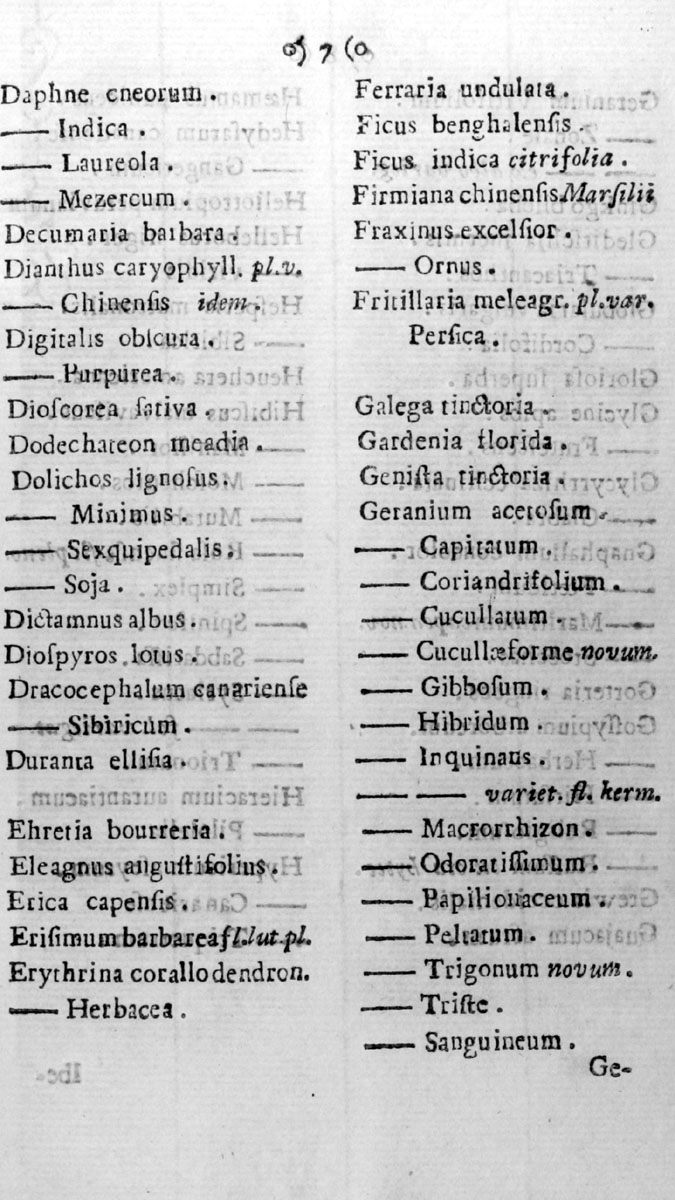 o) 7 (o
Daphne cneorum.
—— Indica.
—— Laureola.
—— Mezereum.
Decumaria barbara.
Dianthus caryophyll. pl.v.
—— Chinenſis idem.
Digitalis obſcura.
—— Purpurea.
Dioſcorea ſativa.
Dodechateon meadia.
Dolichos lignoſus.
—— Minimus.
—— Sexquipedalis.
—— Soja.
Dictamnus albus.
Dioſpyros lotus.
Dracocephalum canarienſe
—— Sibiricum.
Duranta elliſia.
Ehretia bourreria.
Eleagnus anguſtifolius.
Erica capenſis.
Eriſimum barbarea fl.lut.pl.
Erythrina corallodendron.
—— Herbacea.
Ferraria undulata.
Ficus benghalenſis.
Ficus indica citrifolia.
Firmiana chinenſis Marſilii
Fraxinus excelſior.
—— Ornus.
Fritillaria meleagr. pl.var.
Perſica.
Galega tinctoria.
Gardenia florida.
Geniſta tinctoria.
Geranium acetoſum.
—— Capitatum.
—— Coriandrifolium.
—— Cucullatum.
—— Cucullæforme novum.
—— Gibboſum.
—— Hibridum.
—— Inquinans.
—— —— variet. fl. kerm.
—— Macrorrhizon.
—— Odoratiſſimum.
—— Papilionaceum.
—— Peltatum.
—— Trigonum novum.
—— Triſte.
—— Sanguineum.
Ge-